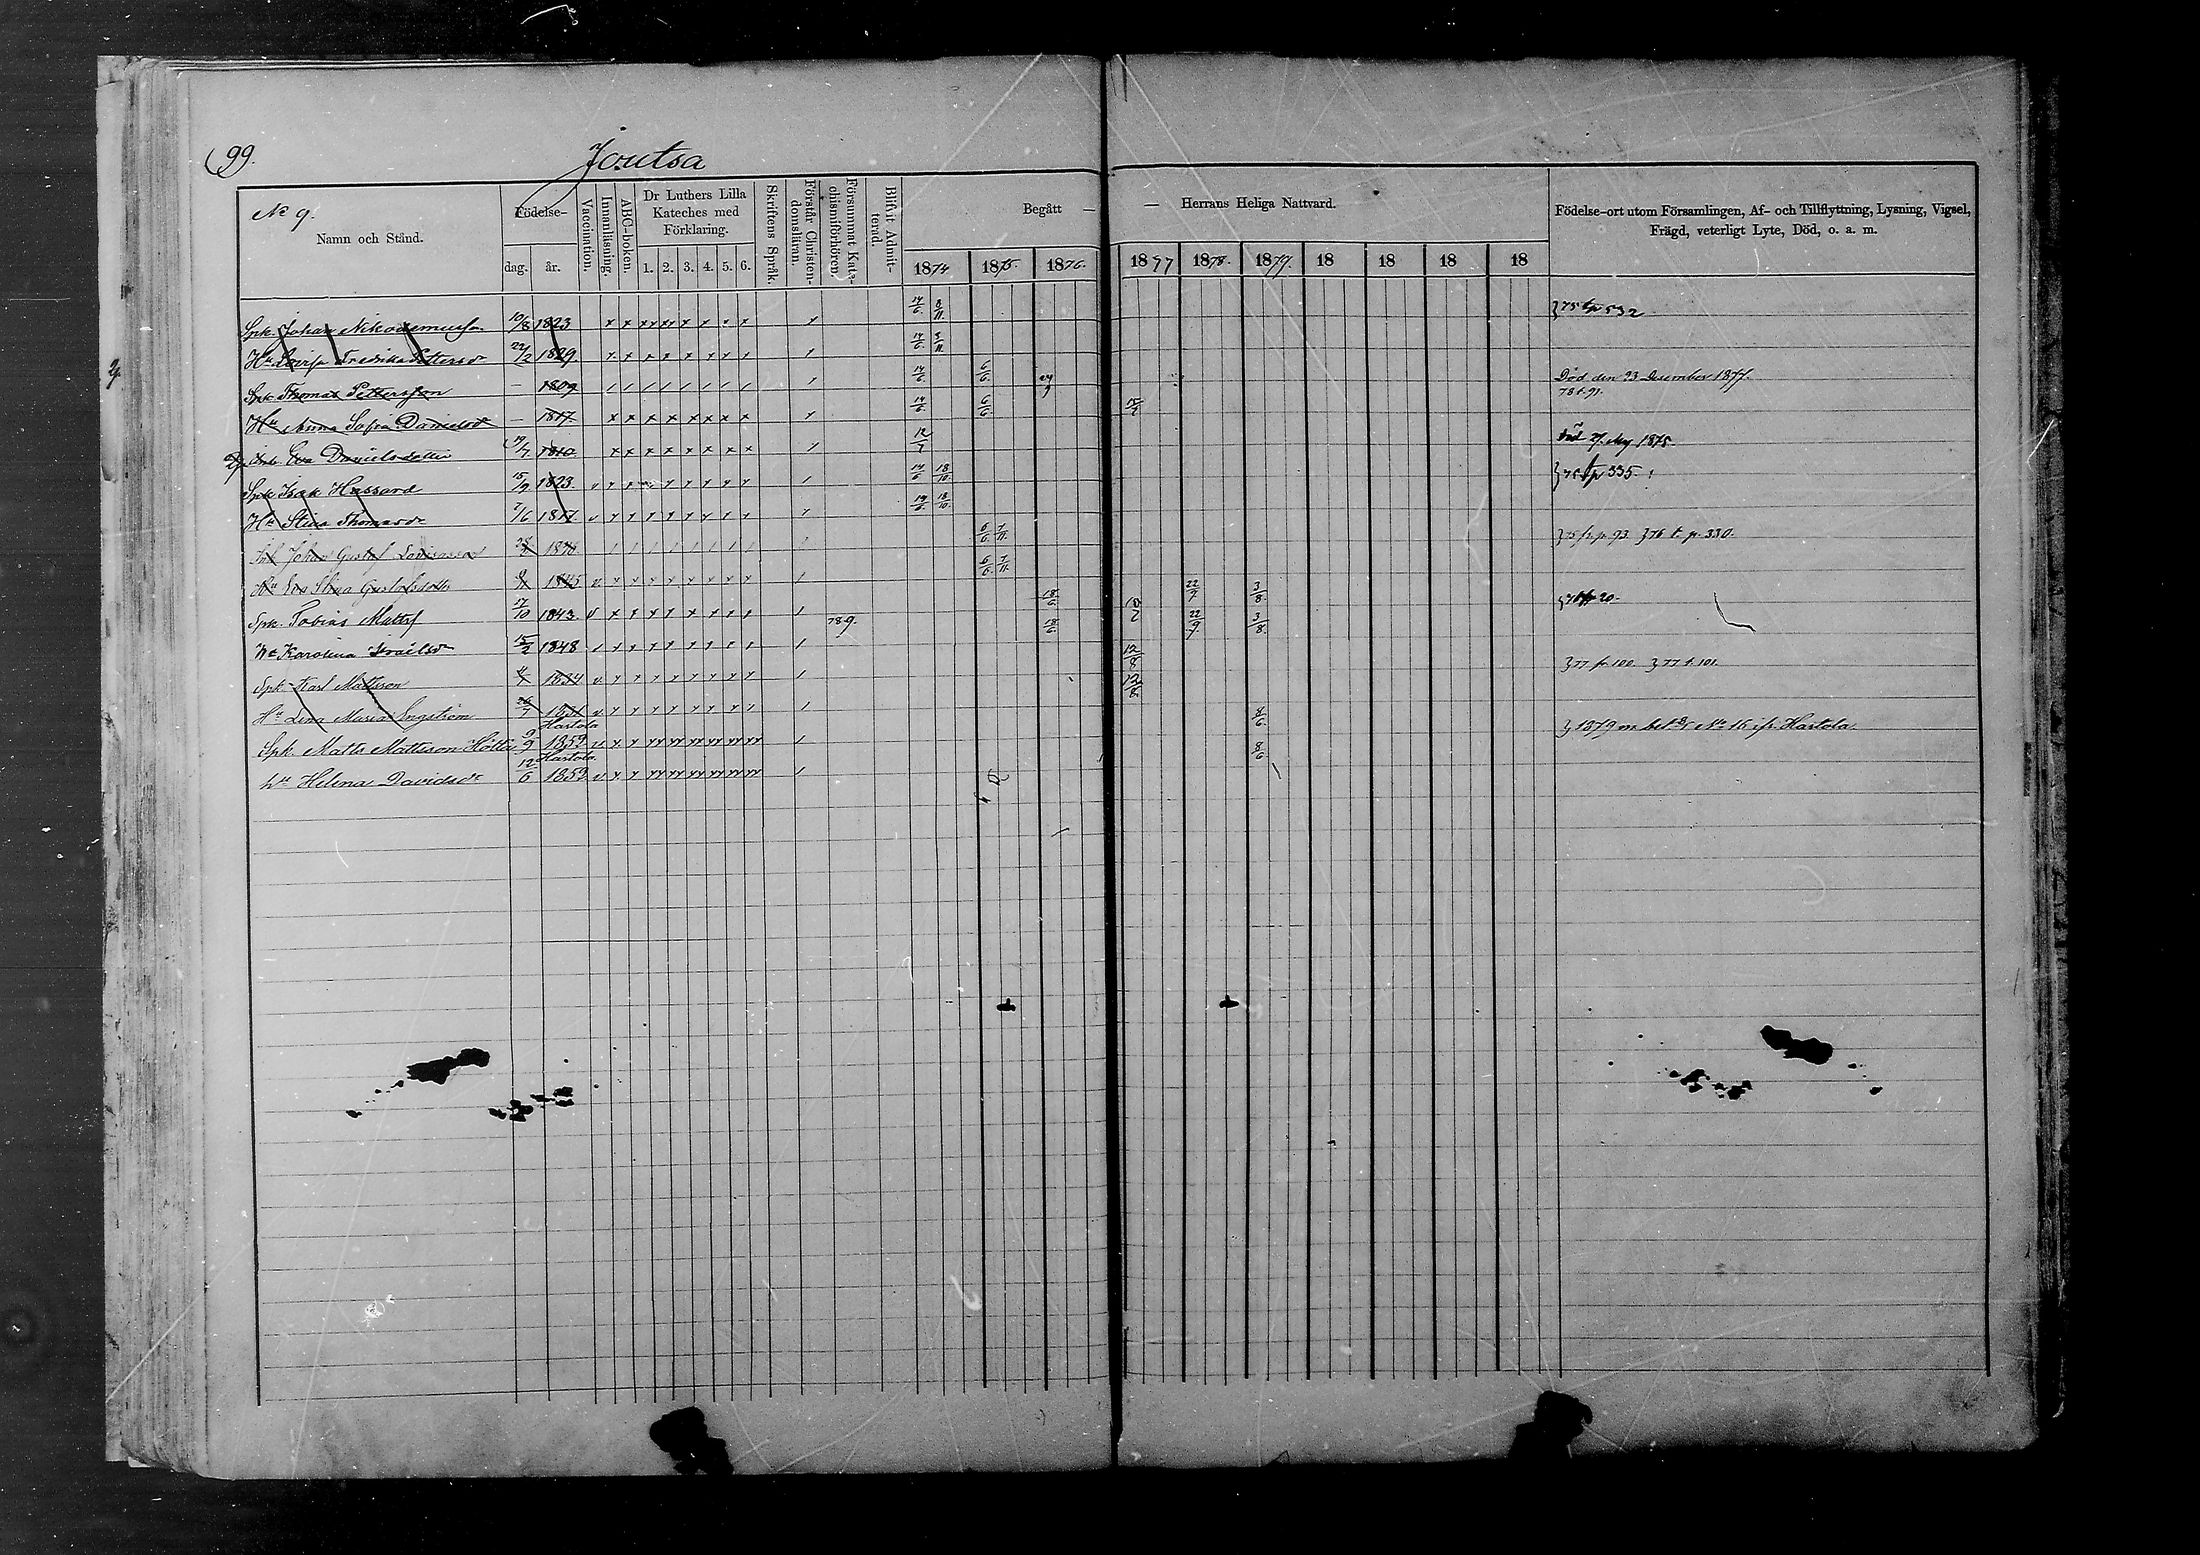 99.
Joutsa
No 9.
Namn och Stånd.
Födelse-
dag. år.
Vaccination.
Innanläsning.
ABC-boken.
Dr Luthers Lilla Kateches med Förklaring.
1. 2. 3. 4. 5. 6.
Skriftens Språk.
Förstår Christendomslärnn.
Försummat Katechismiförhören.
Blifvit Admitterad.
Begått — — Herrans Heliga Nattvard.
1874 1875. 1876. 1877 1878. 1879. 18 18 18 18
Födelse-ort utom Församlingen, Af- och Tillflyttning, Lysning, Vigsel,
Frägd, veterligt Lyte, Död, o. a. m.
Spk. Johan Nikodemuss. 10/8 1823 14/6. 8/11. 75 t p 532
Hu Lovisa Fredrika Pettersdr 22/2 1829. 14/6. 8/11.
Spk Thomas Pettersson — 1809 14/6 6/6. Död den 23 December 1877.
78 t. 91.
Hu Anna Sofia Danielsdr — 1817. 14/6. 6/6.
Eva Danielsdotter 19/7 1810. 12/7 Död 27. Maj 1875.
Spk Isak Hussard 15/9 1823. v 14/6 18/10. 335
Hu Stina Thomasdr 7/6 1817. v 14/6. 18/10.
Johan Gustaf 6/6. 7/11. 75 fr. p. 93. 76 t. p. 330.
Hu Eva Stina Gustafsdotter 1845 v. 6/6. 7/11.
Spk. Tobias Matts 17/10 1843. v 18/6. 22/9 3/8 20.
Hu Karolina Israelsdr 15/2 1848 789. 18/6. 22/9. 3/8.
Spk. Karl Mattsson 1834 v. 12/8 77 fr. 100. 77 t. 101.
Hu Lena Maria Engström 26/7 v. 12/8.
Hartola
Spk. Matts Mattsson Höltt 9/9 1852 v. 8/6. 1879 m. bet. No 16 ifr. Hartola.
Hartola.
hu Helena Davidsdr 12/6 1852 v 8/6